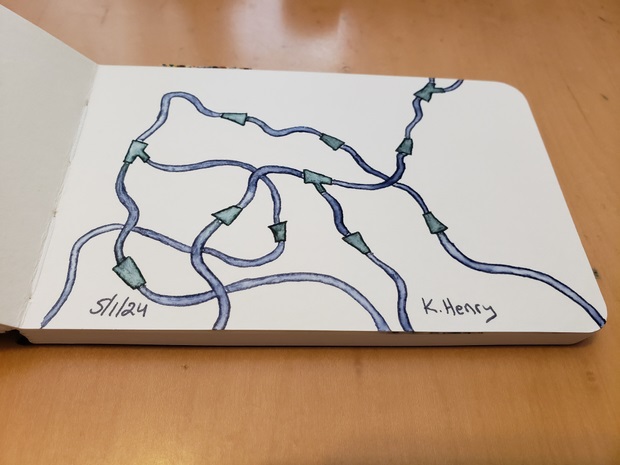 5/1/24
K. Henry